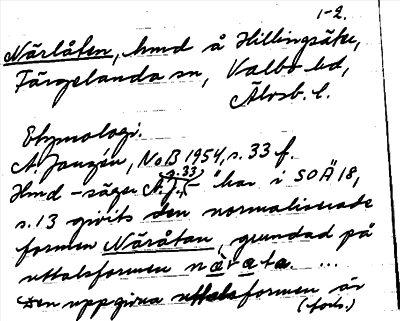 1-2.
Närlåten, hmd å Hillingsäter,
Färgelanda sn, Valbo hd,
Älvsb. l.
Etymologi.
A. Janzén, NoB 1954, s. 33 f.
Hmd – säger A. J. (s. 33) – "har i SOÄ 18,
s. 13 givits den normaliserade
formen Näråtan, grundad på
uttalsformen
Den uppgivna uttalsformen är
(forts.)